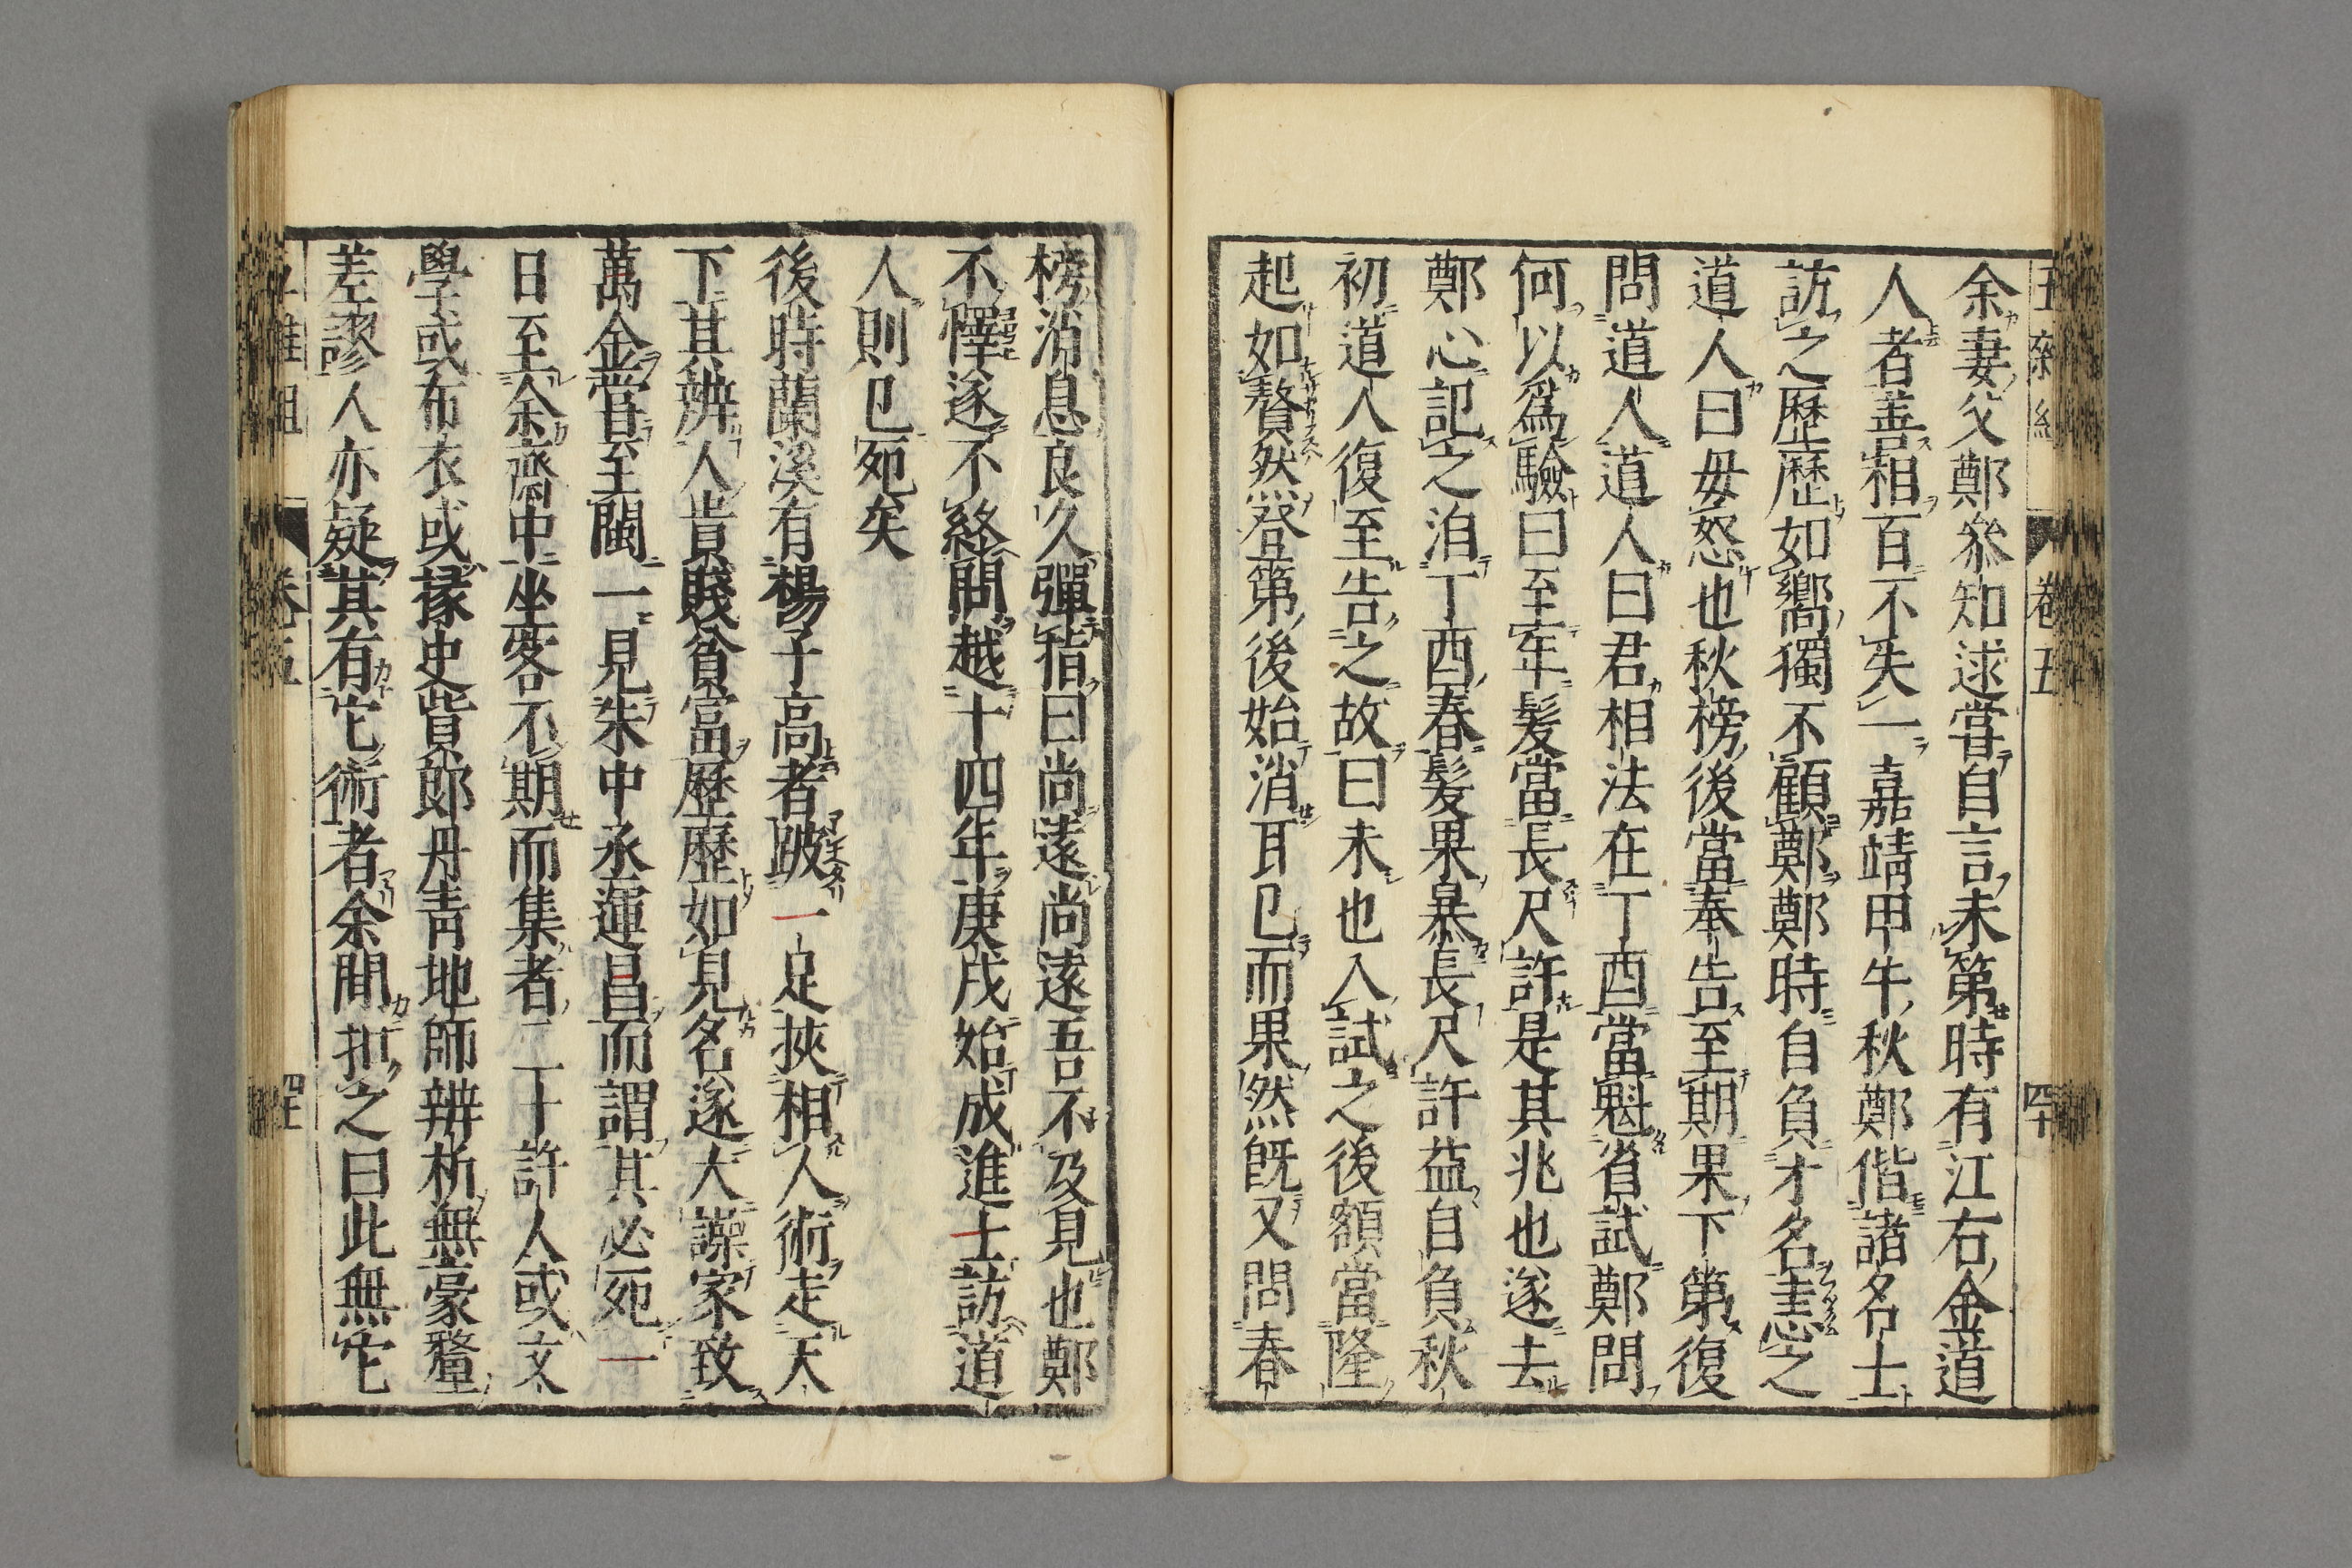 余妻父鄭參知逑嘗自言未第時有江右金道
人者善相百不失一嘉靖甲午秋鄭偕諸名士
訪之歷歷如嚮獨不顧鄭鄭時自負才名恚之
道人曰毋怒也秋榜後當奉告至期果下第復
問道人道人曰君相法在丁酉當魁省試鄭問
何以爲驗曰至年髮當長尺許是其兆也遂去
鄭心記之洎丁酉春髮果暴長尺許益自負秋
初道人復至告之故曰未也入試之後額當隆
起如贅然登第後始消耳已而果然既又問春
榜消息良久彈指曰尚遠尚遠吾不及見也鄭
不懌遂不終問越十四年庚戌始成進士訪道
人則已死矣
後時蘭溪有楊子高者跛一足挾相人術走天
下其辨人貴賤貧富歷歷如見名遂大譟家致
萬金嘗至閩一見朱中丞運昌而謂其必死一
日至余齋中坐客不期而集者二十許人或文
學或布衣或掾史貲郎丹青地師辨析無毫釐
差謬人亦疑其有它術者余間扣之曰此無它
卷五
四十
卷五